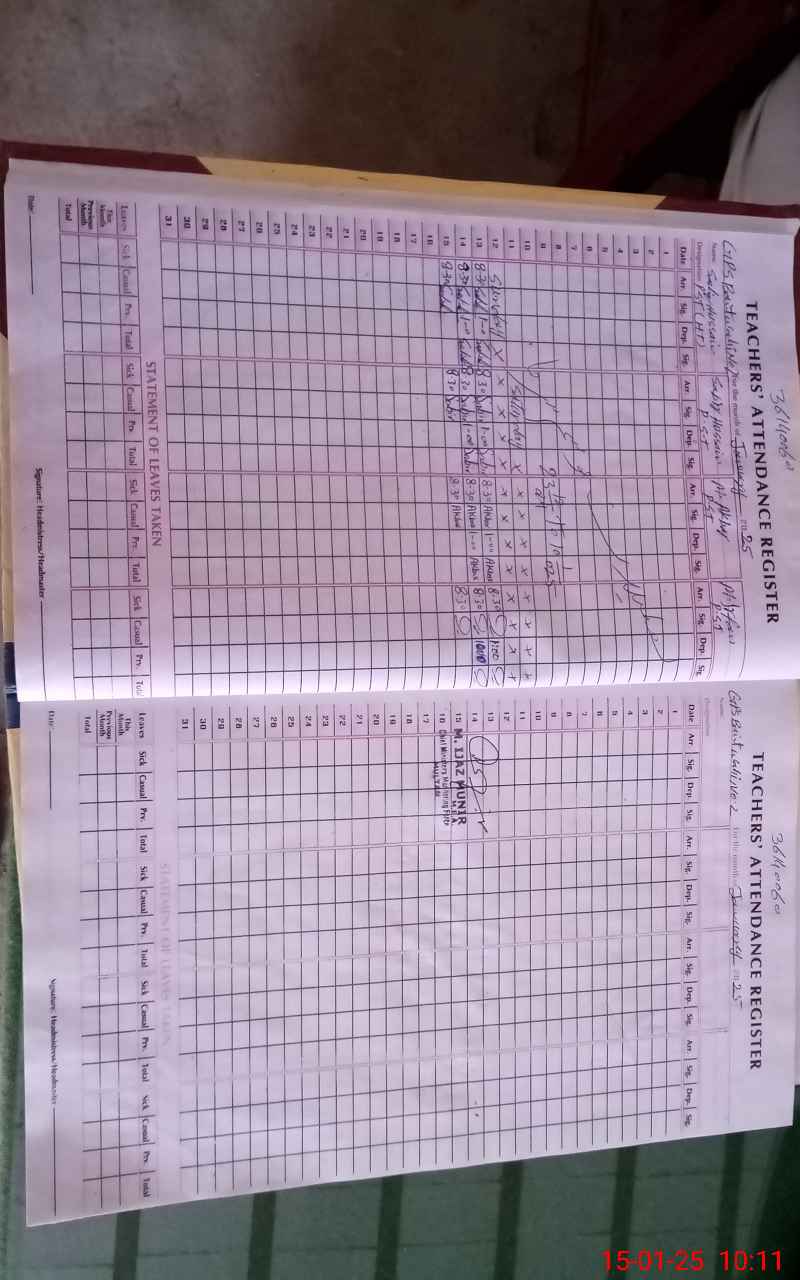 36110060
TEACHERS' ATTENDANCE REGISTER
For the month of January 2025
Name Sabir Hussain Sabir Hussain M. Akbar
Designation PST (HT) P.S.T PST PST
Date Arr. Sig. Dep. Sig. Arr. Sig. Dep. Sig. Arr. Sig. Dep. Sig. Arr. Sig. Dep. Sig.
1
2
3
4
5
6
7
8
9
10
11 Saturday x x x x x x
12 Sunday x x x x x x x x
13 8:30 1-00 8:30 Sabir 1-00 Sabir 8:30 Akbar 1-00 Akbar 8:30 1:00
14 8:30 1-00 8:30 Sabir 1-00 Sabir 8:30 Akbar 1-00 Akbar 8:30
15 8:30 8:30 Sabir 8:30 Akbar 8:30
16
17
18
19
20
21
22
23
24
25
26
27
28
29
30
31
STATEMENT OF LEAVES TAKEN
Leaves Sick Casual Prv. Total Sick Casual Prv. Total Sick Casual Prv. Total Sick Casual Prv. Total
This Month
Previous Month
Total
Date: Signature: Headmistress/Headmaster
36110060
TEACHERS' ATTENDANCE REGISTER
For the month January 2025
Name
Designation
Date Arr. Sig. Dep. Sig. Arr. Sig. Dep. Sig. Arr. Sig. Dep. Sig. Arr. Sig. Dep. Sig.
1
2
3
4
5
6
7
8
9
10
11
12
13
14
15 M. IJAZ MUNIR
M.E.A
16 Chief Ministers Monitoring Force
MULTAN
17
18
19
20
21
22
23
24
25
26
27
28
29
30
31
STATEMENT OF LEAVES TAKEN
Leaves Sick Casual Prv. Total Sick Casual Prv. Total Sick Casual Prv. Total Sick Casual Prv. Total
This Month
Previous Month
Total
Date: Signature: Headmistress/Headmaster
15-01-25 10:11